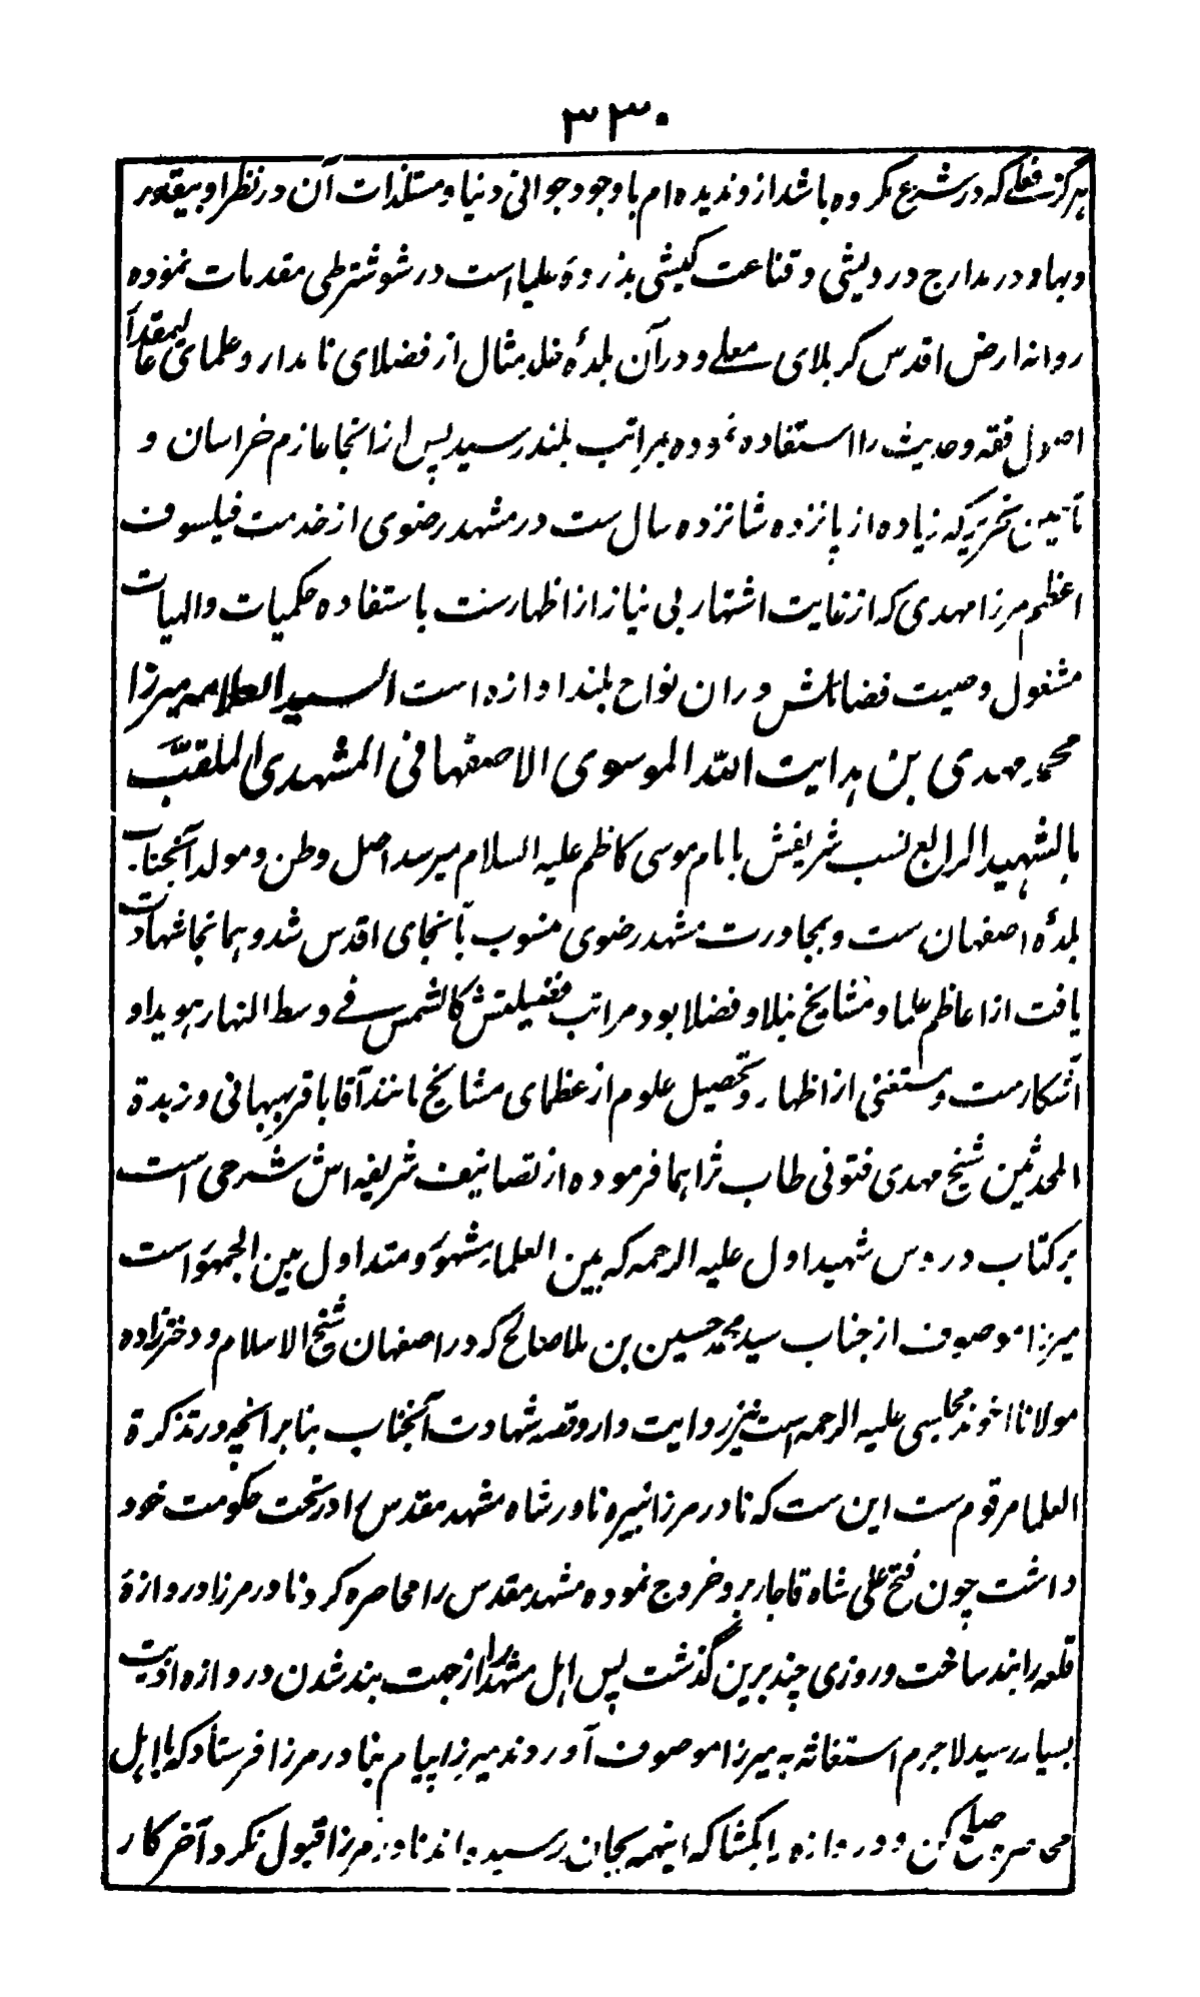 ۳۳۰
هرگز فعلے که در شرع مکروه باشد ازو ندیده ام باوجود جوانی دنیا و مستلذات آن در نظر او بیقدر
و بها و در مدارج درویشی و قناعت کیشی بذروهٔ علیا است در شوشتر طی مقدمات نموده
روانه ارض اقدس کربلای معلے و در آن بلدهٔ خلد مثال از فضلای نامدار و علمای عالیمقدار
اصول فقه و حدیث را استفاده نموده بمراتب بلند رسید پس از انجا عازم خراسان و
تا حین تحریر که زیاده از پانزده شانزده سال ست در مشهد رضوی از خدمت فیلسوف
اعظم مرزا مهدی که از غایت اشتهار بی نیاز از اظهارست باستفاده حکمیات والهیات
مشغول وصیت فضائلش دران نواح بلند اوازه است السید العلامه میرزا
محمد مهدی بن هدایت الله الموسوی الاصفهانی المشهدی الملقب
بالشهید الرابع نسب شریفش بامام موسی کاظم علیه السلام میرسد اصل وطن و مولد آنجناب
بلدهٔ اصفهان ست و بمجاورت مشهد رضوی منسوب بآنجای اقدس شد و همانجا شهادت
یافت از اعاظم علما و مشایخ نبلا و فضلا بود مراتب فضیلتش کالشمس فے وسط النهار هویدا و
آشکارست و مستغنی از اظهار و تحصیل علوم از عظمای مشایخ مانند آقا باقر بهبهانی و زبدة
المحدثین شیخ مهدی فتونی طاب ثراهما فرموده از تصانیف شریفه اش شرحی است
بر کتاب دروس شهید اول علیه الرحمه که بین العلما مشهور و متداول بین الجمهور است
میرزا موصوف از جناب سید محمد حسین بن ملا صالح که در اصفهان شیخ الاسلام و دختر زاده
مولانا اخوند مجلسی علیه الرحمه است نیز روایت دارو قصه شهادت آنجناب بنابر انچه در تذکرة
العلما مرقوم ست این ست که نادر مرزا نبیره نادر شاه مشهد مقدس را در تحت حکومت خود
داشت چون فتح علی شاه قاجار برو خروج نموده مشهد مقدس را محاصره کرد نادر مرزا دروازهٔ
قلعه را بند ساخت و روزی چند برین گذشت پس اهل مشهد را از جهت بند شدن دروازه اذیت
بسیار رسید لاجرم استغاثه به میرزا موصوف آوردند میرزا پیام بنادر مرزا فرستاد که با اهل
محاصره صلح کن و دروازه را بکشا که اینهمه بجان رسیده اند نادر مرزا قبول نکرد آخر کار